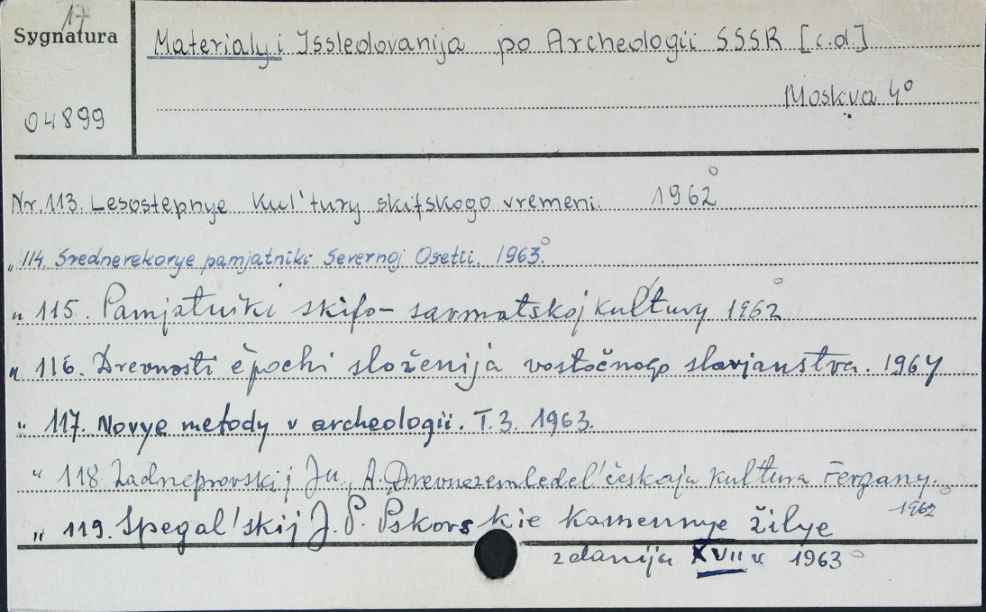 17
Sygnatura
Materialy i Issledovanija po Archeologii SSSR [c.d.]
04899
Moskva 4°
Nr. 113. Lesostepnye kul'tury skifskogo vremeni. 1962°
„ 114. Srednevekovye pamjatniki Severnoj Osetii. 1963°.
„ 115. Pamjatniki skifo-sarmatskoj kul'tury 1962°
„ 116. Drevnosti èpochi složenija vostočnogo slavjanstva. 1964
„ 117. Novye metody v archeologii. T. 3. 1963.
„ 118 Zadneprovskij Ju. A. Drevnezemledel'českaja kul'tura Fergany.
1962°
„ 119. Spegal'skij J. P. Pskovskie kamennye žilye
zdanija XVII v 1963°